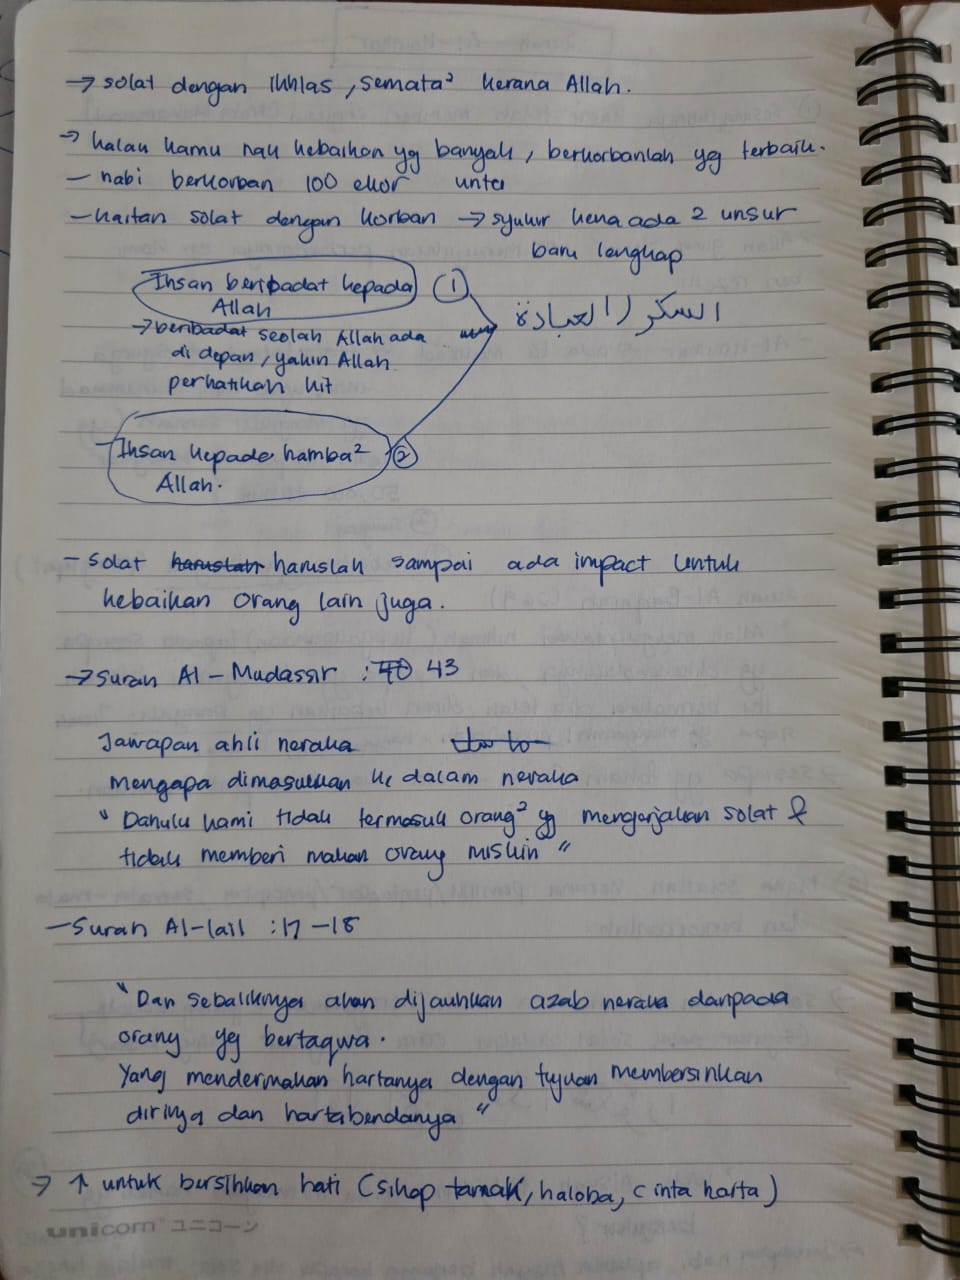 → solat dengan Ikhlas, semata² kerana Allah.
→ kalau kamu nak kebaikan yg banyak, berkorbanlah yg terbaik.
- nabi berkorban 100 ekor unta
- kaitan solat dengan korban → syukur kena ada 2 unsur
baru lengkap
Ihsan beribadat kepada ①
Allah
السكر / العبادة
→ beribadat seolah Allah ada
di depan, yakin Allah
perhatikan kit
- Ihsan kepada hamba² ②
Allah.
- solat haruslah haruslah sampai ada impact untuk
kebaikan orang lain juga.
→ Surah Al-Mudassir : 40 43
Jawapan ahli neraka
mengapa dimasukkan ke dalam neraka
" Dahulu kami tidak termasuk orang² yg mengerjakan solat &
tidak memberi makan orang miskin "
- Surah Al-lail : 17-18
" Dan sebaliknya akan dijauhkan azab neraka daripada
orang yg bertaqwa.
Yang mendermakan hartanya dengan tujuan membersihkan
dirinya dan hartabendanya "
→ ↑ untuk bersihkan hati (sikap tamak, haloba, cinta harta)
unicorn ユニコーン